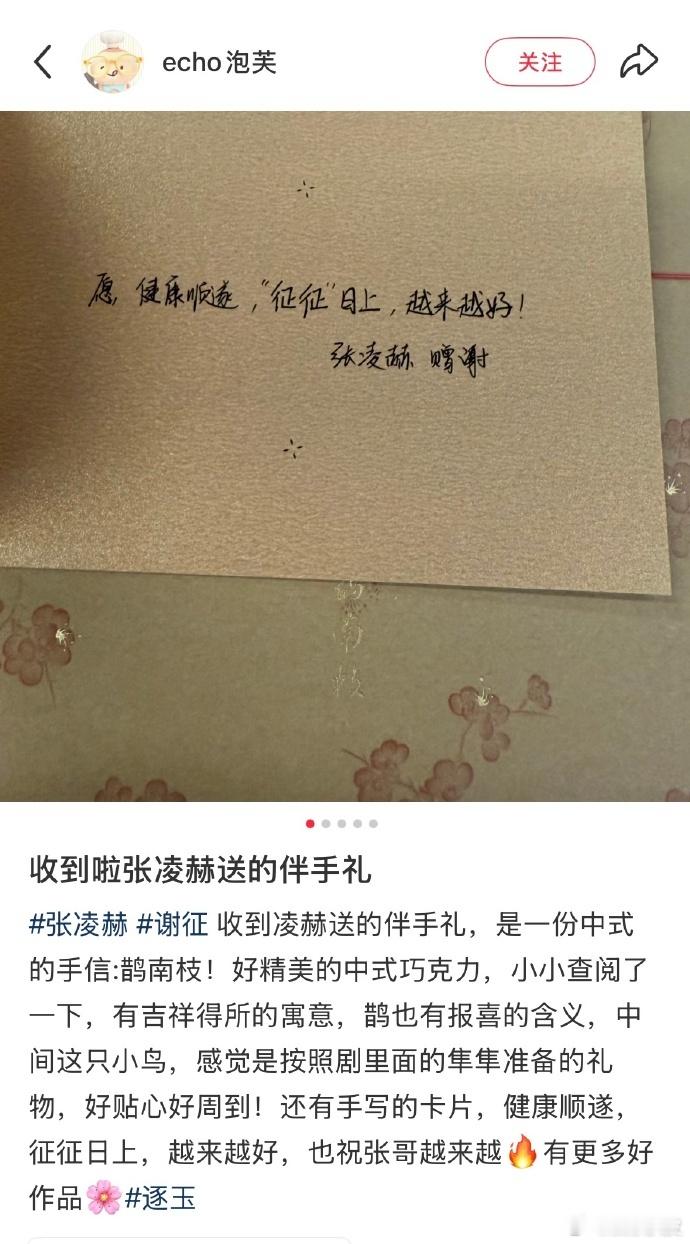 echo泡芙
关注
愿 健康顺遂，“征征”日上，越来越好！
张凌赫 赠谢
南枝
收到啦张凌赫送的伴手礼
#张凌赫 #谢征 收到凌赫送的伴手礼，是一份中式
的手信:鹊南枝！好精美的中式巧克力，小小查阅了
一下，有吉祥得所的寓意，鹊也有报喜的含义，中
间这只小鸟，感觉是按照剧里面的隼隼准备的礼
物，好贴心好周到！还有手写的卡片，健康顺遂，
征征日上，越来越好，也祝张哥越来越🔥有更多好
作品🌸#逐玉